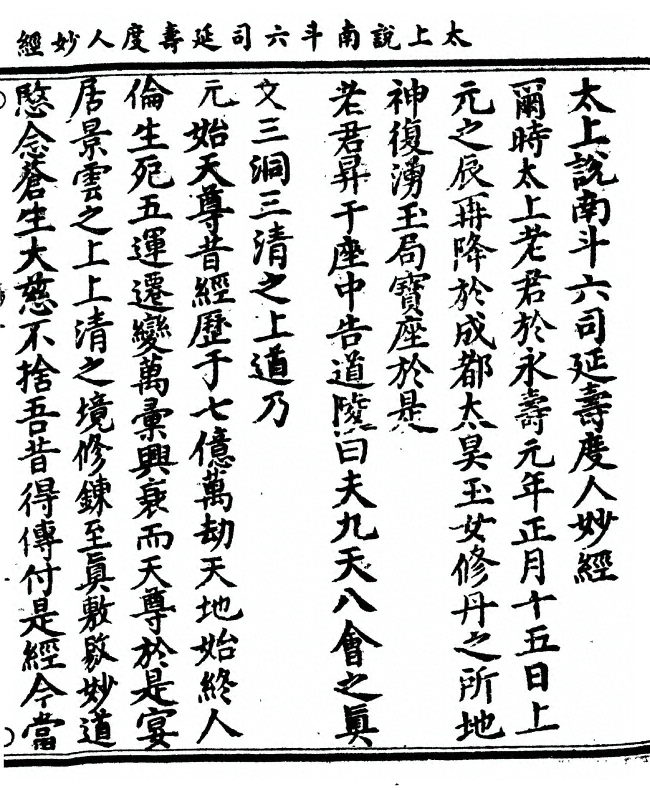 太上說南斗六司延壽度人妙經
太上說南斗六司延壽度人妙經
爾時太上老君於永壽元年正月十五日上
元之辰再降於成都太昊玉女修丹之所地
神復湧玉局寶座於是
老君昇于座中告道陵曰夫九天八會之眞
文三洞三清之上道乃
元始天尊昔經歷于七億萬劫天地始終人
倫生死五運遷變萬彙興衰而天尊於是宴
居景雲之上上清之境修鍊至眞敷敭妙道
愍念蒼生大慈不捨吾昔得傳付是經今當